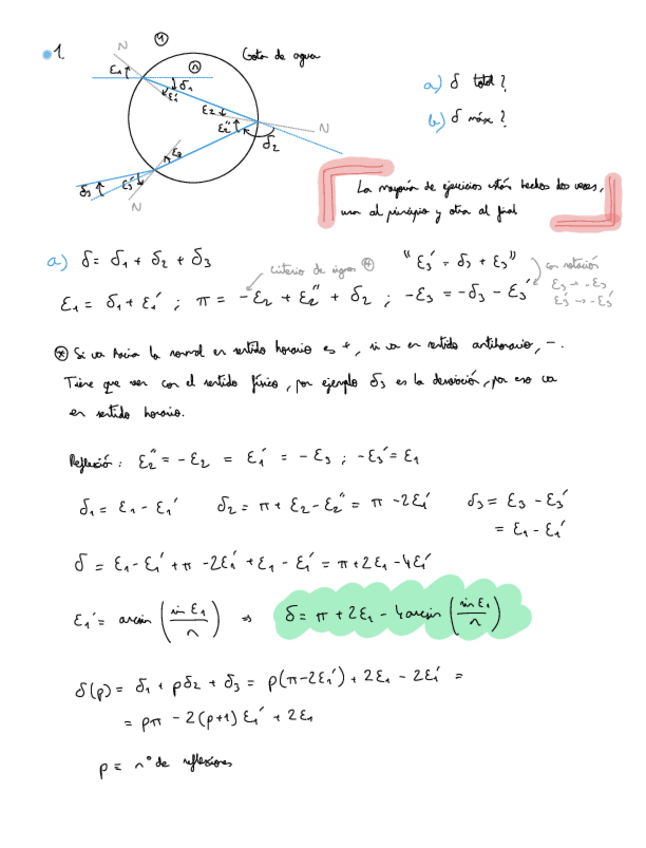 1.
N
(4)
Gota de agua
ε₁
n
δ₁
ε₁'
ε₂
ε₂''
N
δ₂
ε₂
δ₃
ε₃'
N
a) δ total?
b) δ máx?
La mayoría de ejercicios están hechos dos veces,
una al principio y otra al final
a) δ = δ₁ + δ₂ + δ₃
criterio de signos (*)
"ε₃' = δ₃ + ε₃"
con notación
ε₃ → -ε₃
ε₃' → -ε₃'
ε₁ = δ₁ + ε₁' ; π = -ε₂ + ε₂'' + δ₂ ; -ε₃ = -δ₃ - ε₃'
(*) Si va hacia la normal en sentido horario es +, si va en sentido antihorario, -.
Tiene que ver con el sentido físico, por ejemplo δ₃ es la desviación, por eso va
en sentido horario.
Reflexión: ε₂'' = -ε₂ = ε₁' = -ε₃ ; -ε₃' = ε₁
δ₁ = ε₁ - ε₁' δ₂ = π + ε₂ - ε₂'' = π - 2ε₁' δ₃ = ε₃ - ε₃'
= ε₁ - ε₁'
δ = ε₁ - ε₁' + π - 2ε₁' + ε₁ - ε₁' = π + 2ε₁ - 4ε₁'
ε₁' = arcsin (sin ε₁ / n) ⇒ δ = π + 2ε₁ - 4 arcsin (sin ε₁ / n)
δ(p) = δ₁ + pδ₂ + δ₃ = p(π - 2ε₁') + 2ε₁ - 2ε₁' =
= pπ - 2(p+1) ε₁' + 2ε₁
p = nº de reflexiones